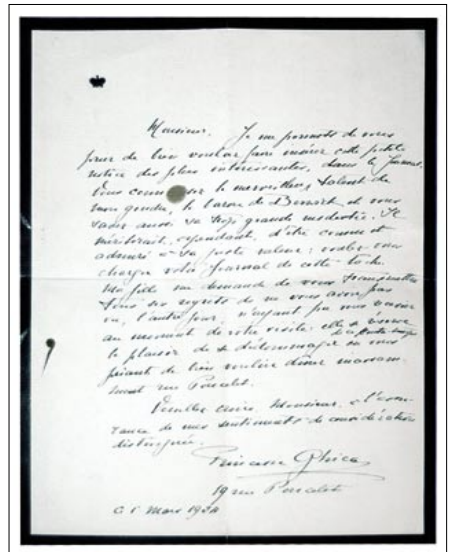 Monsieur. Je me permets de vous
prier de bien vouloir faire insérer cette petite
notice des plus intéressantes, dans le Journal.
Vous connaissez le merveilleux talent de
mon gendre, le baron de Bernart et vous
savez aussi sa trop grande modestie. Il
mériterait, cependant, d'être connu et
admiré à sa juste valeur; voulez-vous
charger votre Journal de cette tâche
Ma fille me demande de vous transmettre
tous ses regrets de ne vous avoir pas
vu, l'autre jour, n'ayant pu nous
au moment de votre visite: elle se
le plaisir de se dédommager en vous
priant de bien vouloir dîner
rue Poncelet.
Veuillez croire, Monsieur, à l'
de mes sentiments de considération
distinguée.
Princesse Ghica
19 rue Poncelet
Mars 19